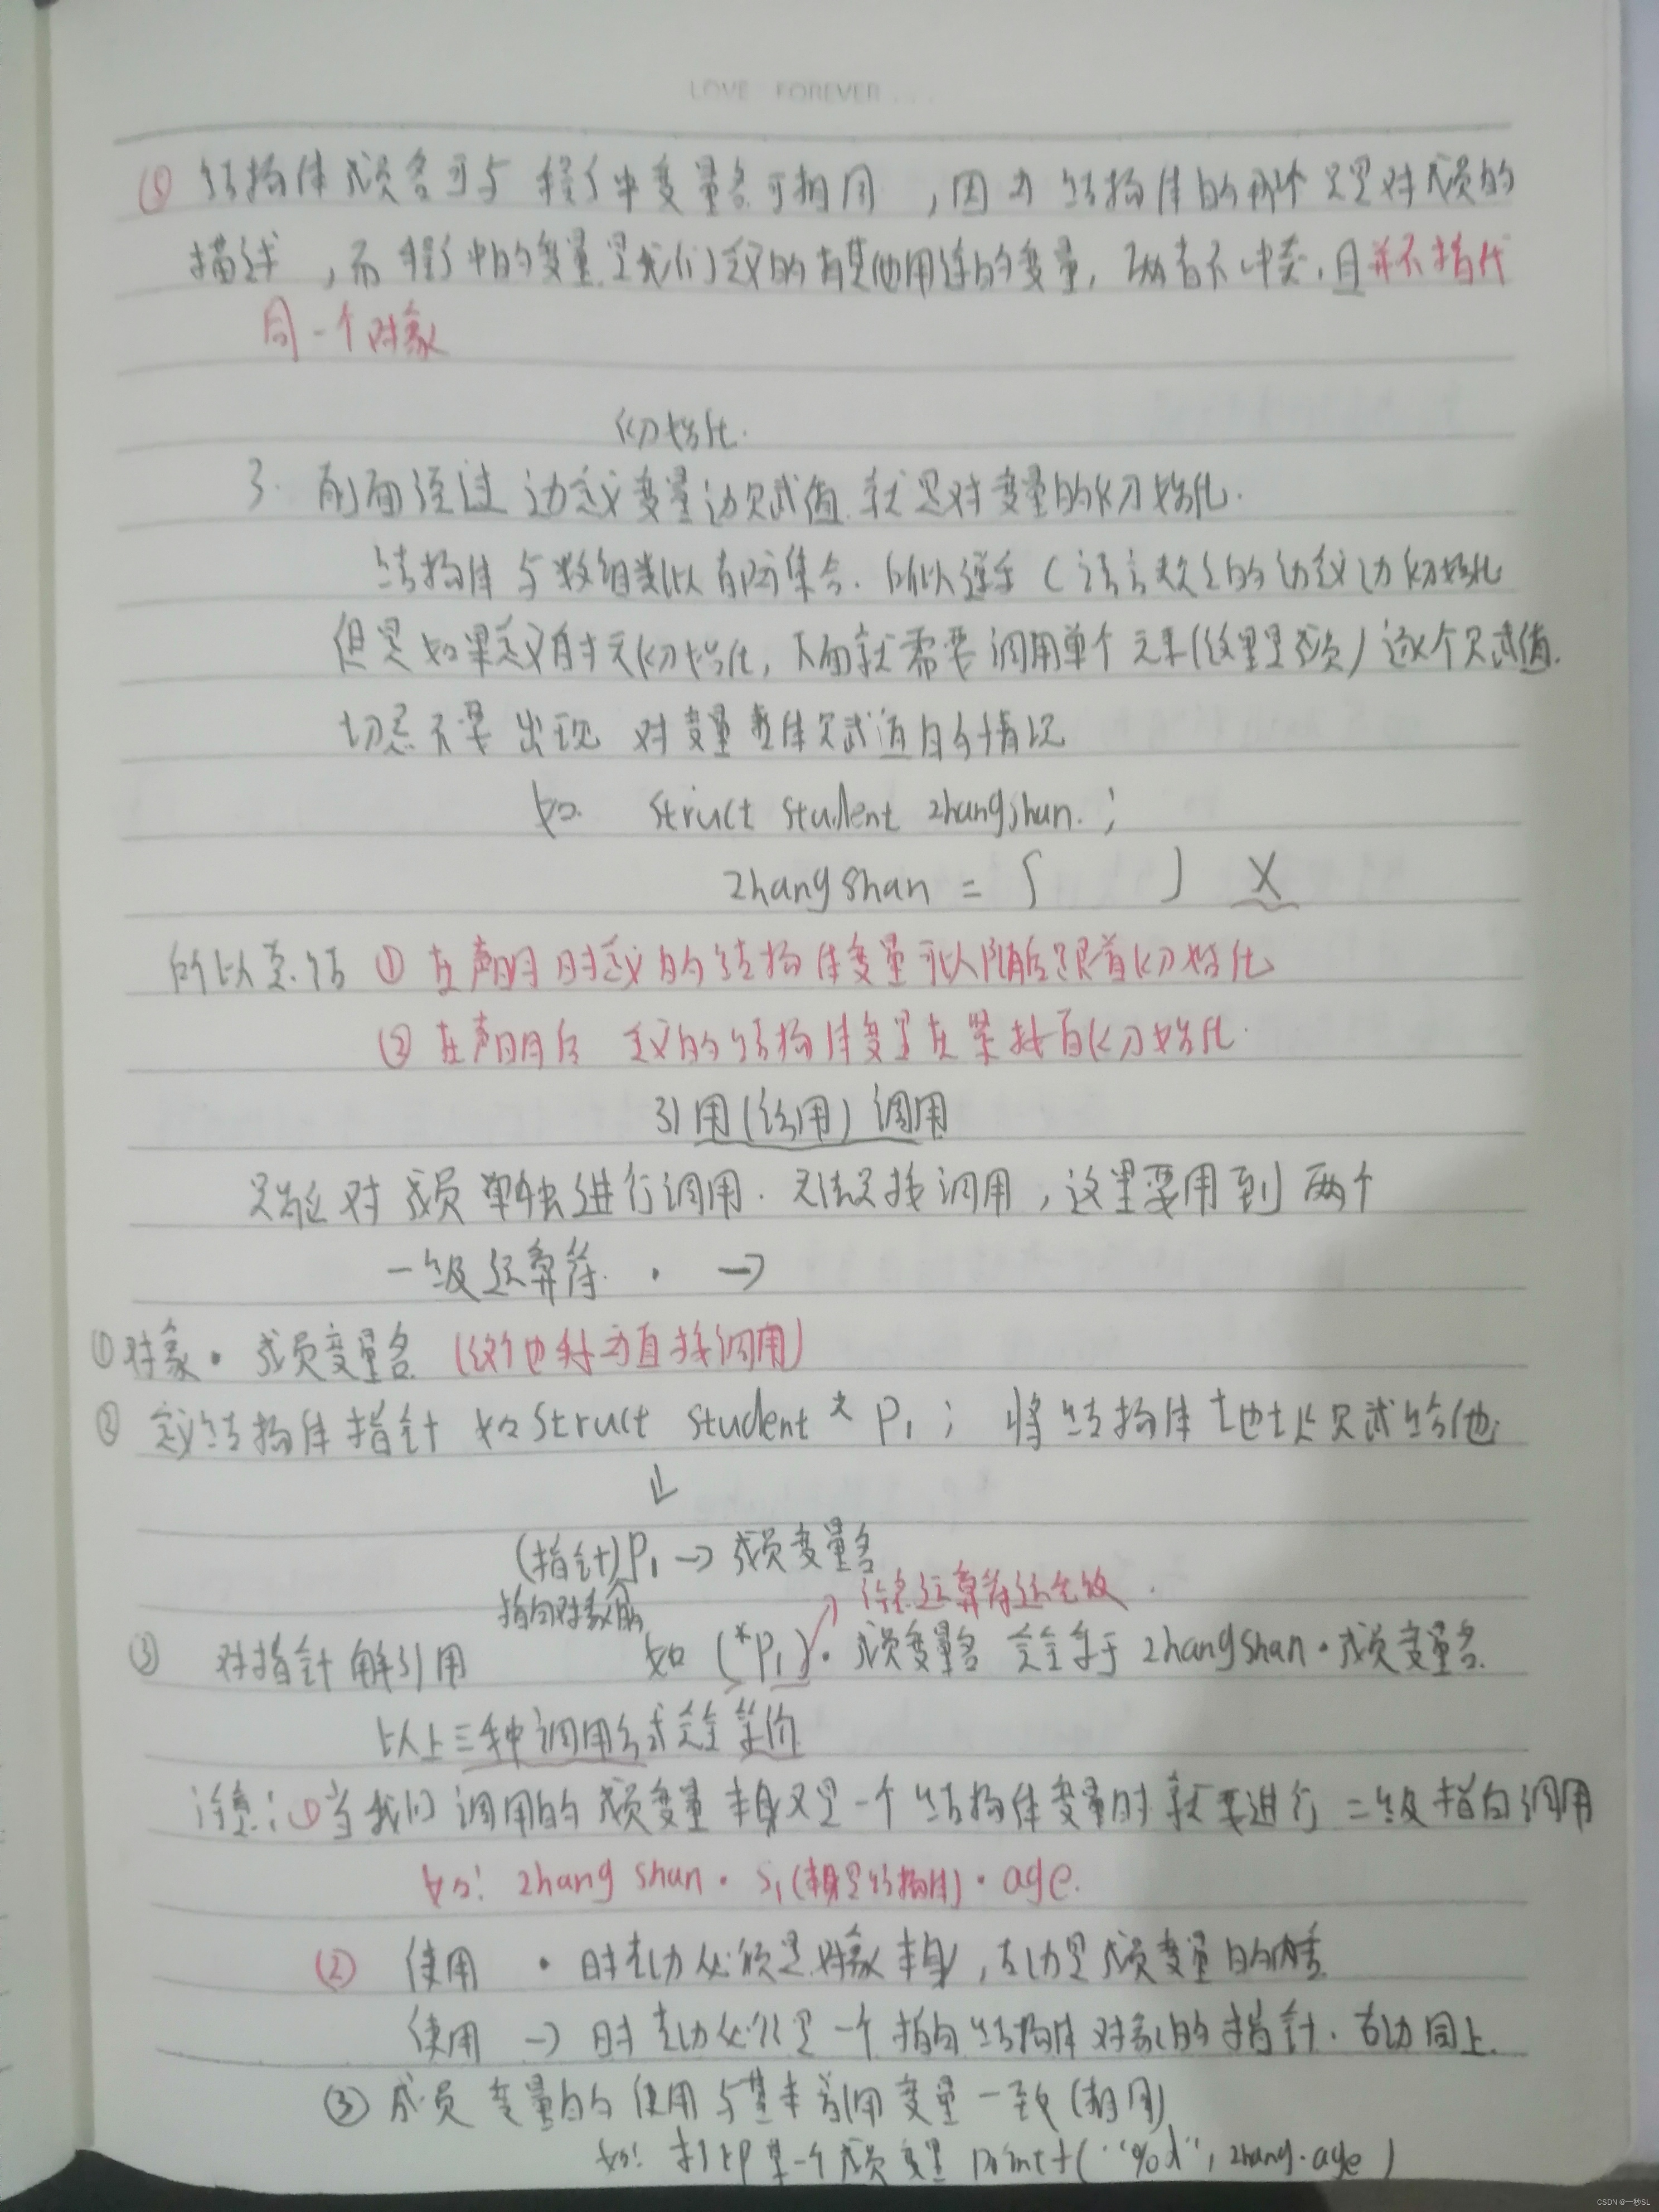 LOVE FOREVER ...
⑤ 结构体成员名可与程序中变量名可相同，因为结构体的那个只是对成员的
描述，而程序中的变量是我们定义的有其他用途的变量，两者不冲突，且并不指代
同一个对象
初始化.
3. 前面经过边定义变量边赋值就是对变量的初始化.
结构体与数组类似有向集合.所以遵守C语言规定的边定义边初始化
但是如果定义时无初始化，下面就需要调用单个元素(这里是成员)逐个赋值.
切忌不要出现对变量整体赋值的情况
如. struct student zhangshan. ;
zhangshan = { } X
所以总结 ① 在声明时定义的结构体变量可以随后跟着初始化
② 在声明后 定义的结构体变量在紧接着初始化.
引用(使用) 调用
只能对成员单独进行调用. 无法直接调用，这里要用到两个
一级运算符. · →
① 对象 · 成员变量名 (这个也称为直接调用)
② 定义结构体指针 如 struct student * p1 ; 将结构体地址赋给他
↓
(指针)p1 → 成员变量名
指向对象前 注意运算符优先级.
③ 对指针解引用 如 (*p1) · 成员变量名 完全等于 zhangshan · 成员变量名.
以上三种调用方式完全等价
注意: ① 当我们调用的成员变量本身又是一个结构体变量时就要进行二级指向调用
如: zhang shan · s1 (本身是结构体) · age.
② 使用 · 时左边必须是对象本身，右边是成员变量的内容
使用 → 时左边必须是一个指向结构体对象的指针. 右边同上.
③ 成员变量的使用与基本类型变量一致(相同)
如: 打印某一个成员变量 printf("%d", zhang.age)
CSDN @一秒SL